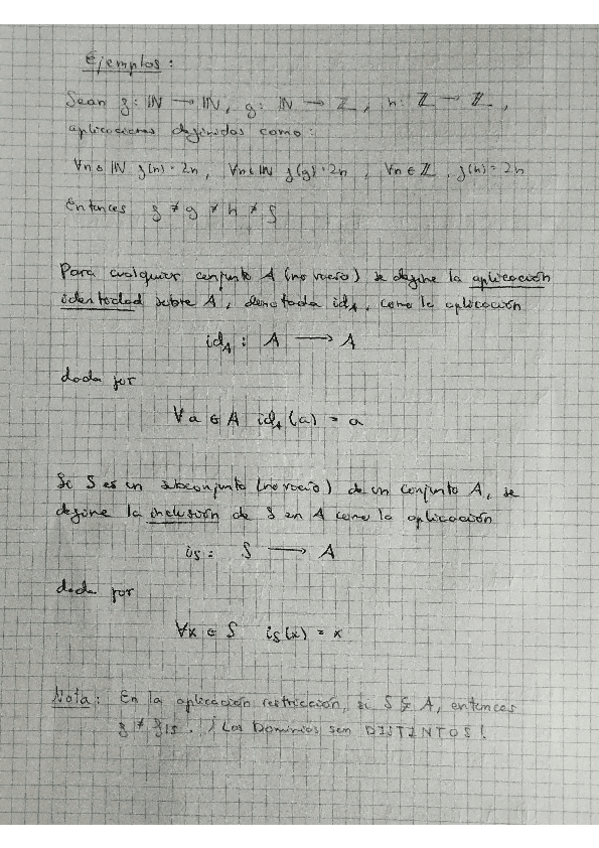 Ejemplos:
Sean f: ℕ → ℕ, g: ℕ → ℤ, h: ℤ → ℤ,
aplicaciones definidas como:
∀n∈ℕ f(n)=2n, ∀n∈ℕ f(g)=2n, ∀n∈ℤ, f(n)=2n
Entonces f ≠ g ≠ h ≠ f
Para cualquier conjunto A (no vacío) se define la aplicación
identidad sobre A, denotada id_A, como la aplicación
id_A : A → A
dada por
∀a ∈ A id_A(a) = a
Si S es un subconjunto (no vacío) de un conjunto A, se
define la inclusión de S en A como la aplicación
is: S → A
dada por
∀x ∈ S is(x) = x
Nota: En la aplicación restricción, si S ⊊ A, entonces
f ≠ f|S. ¡Los Dominios son DISTINTOS!